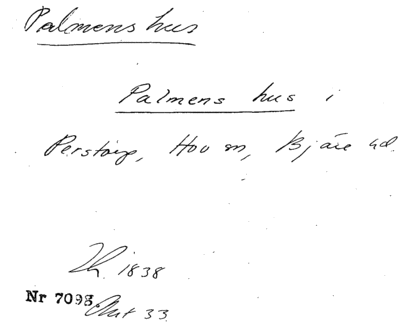 Palmens hus
Palmens hus i
Perstorp, Hov sn, Bjäre hd.
Th. 1838
Nr 7098
Akt 33